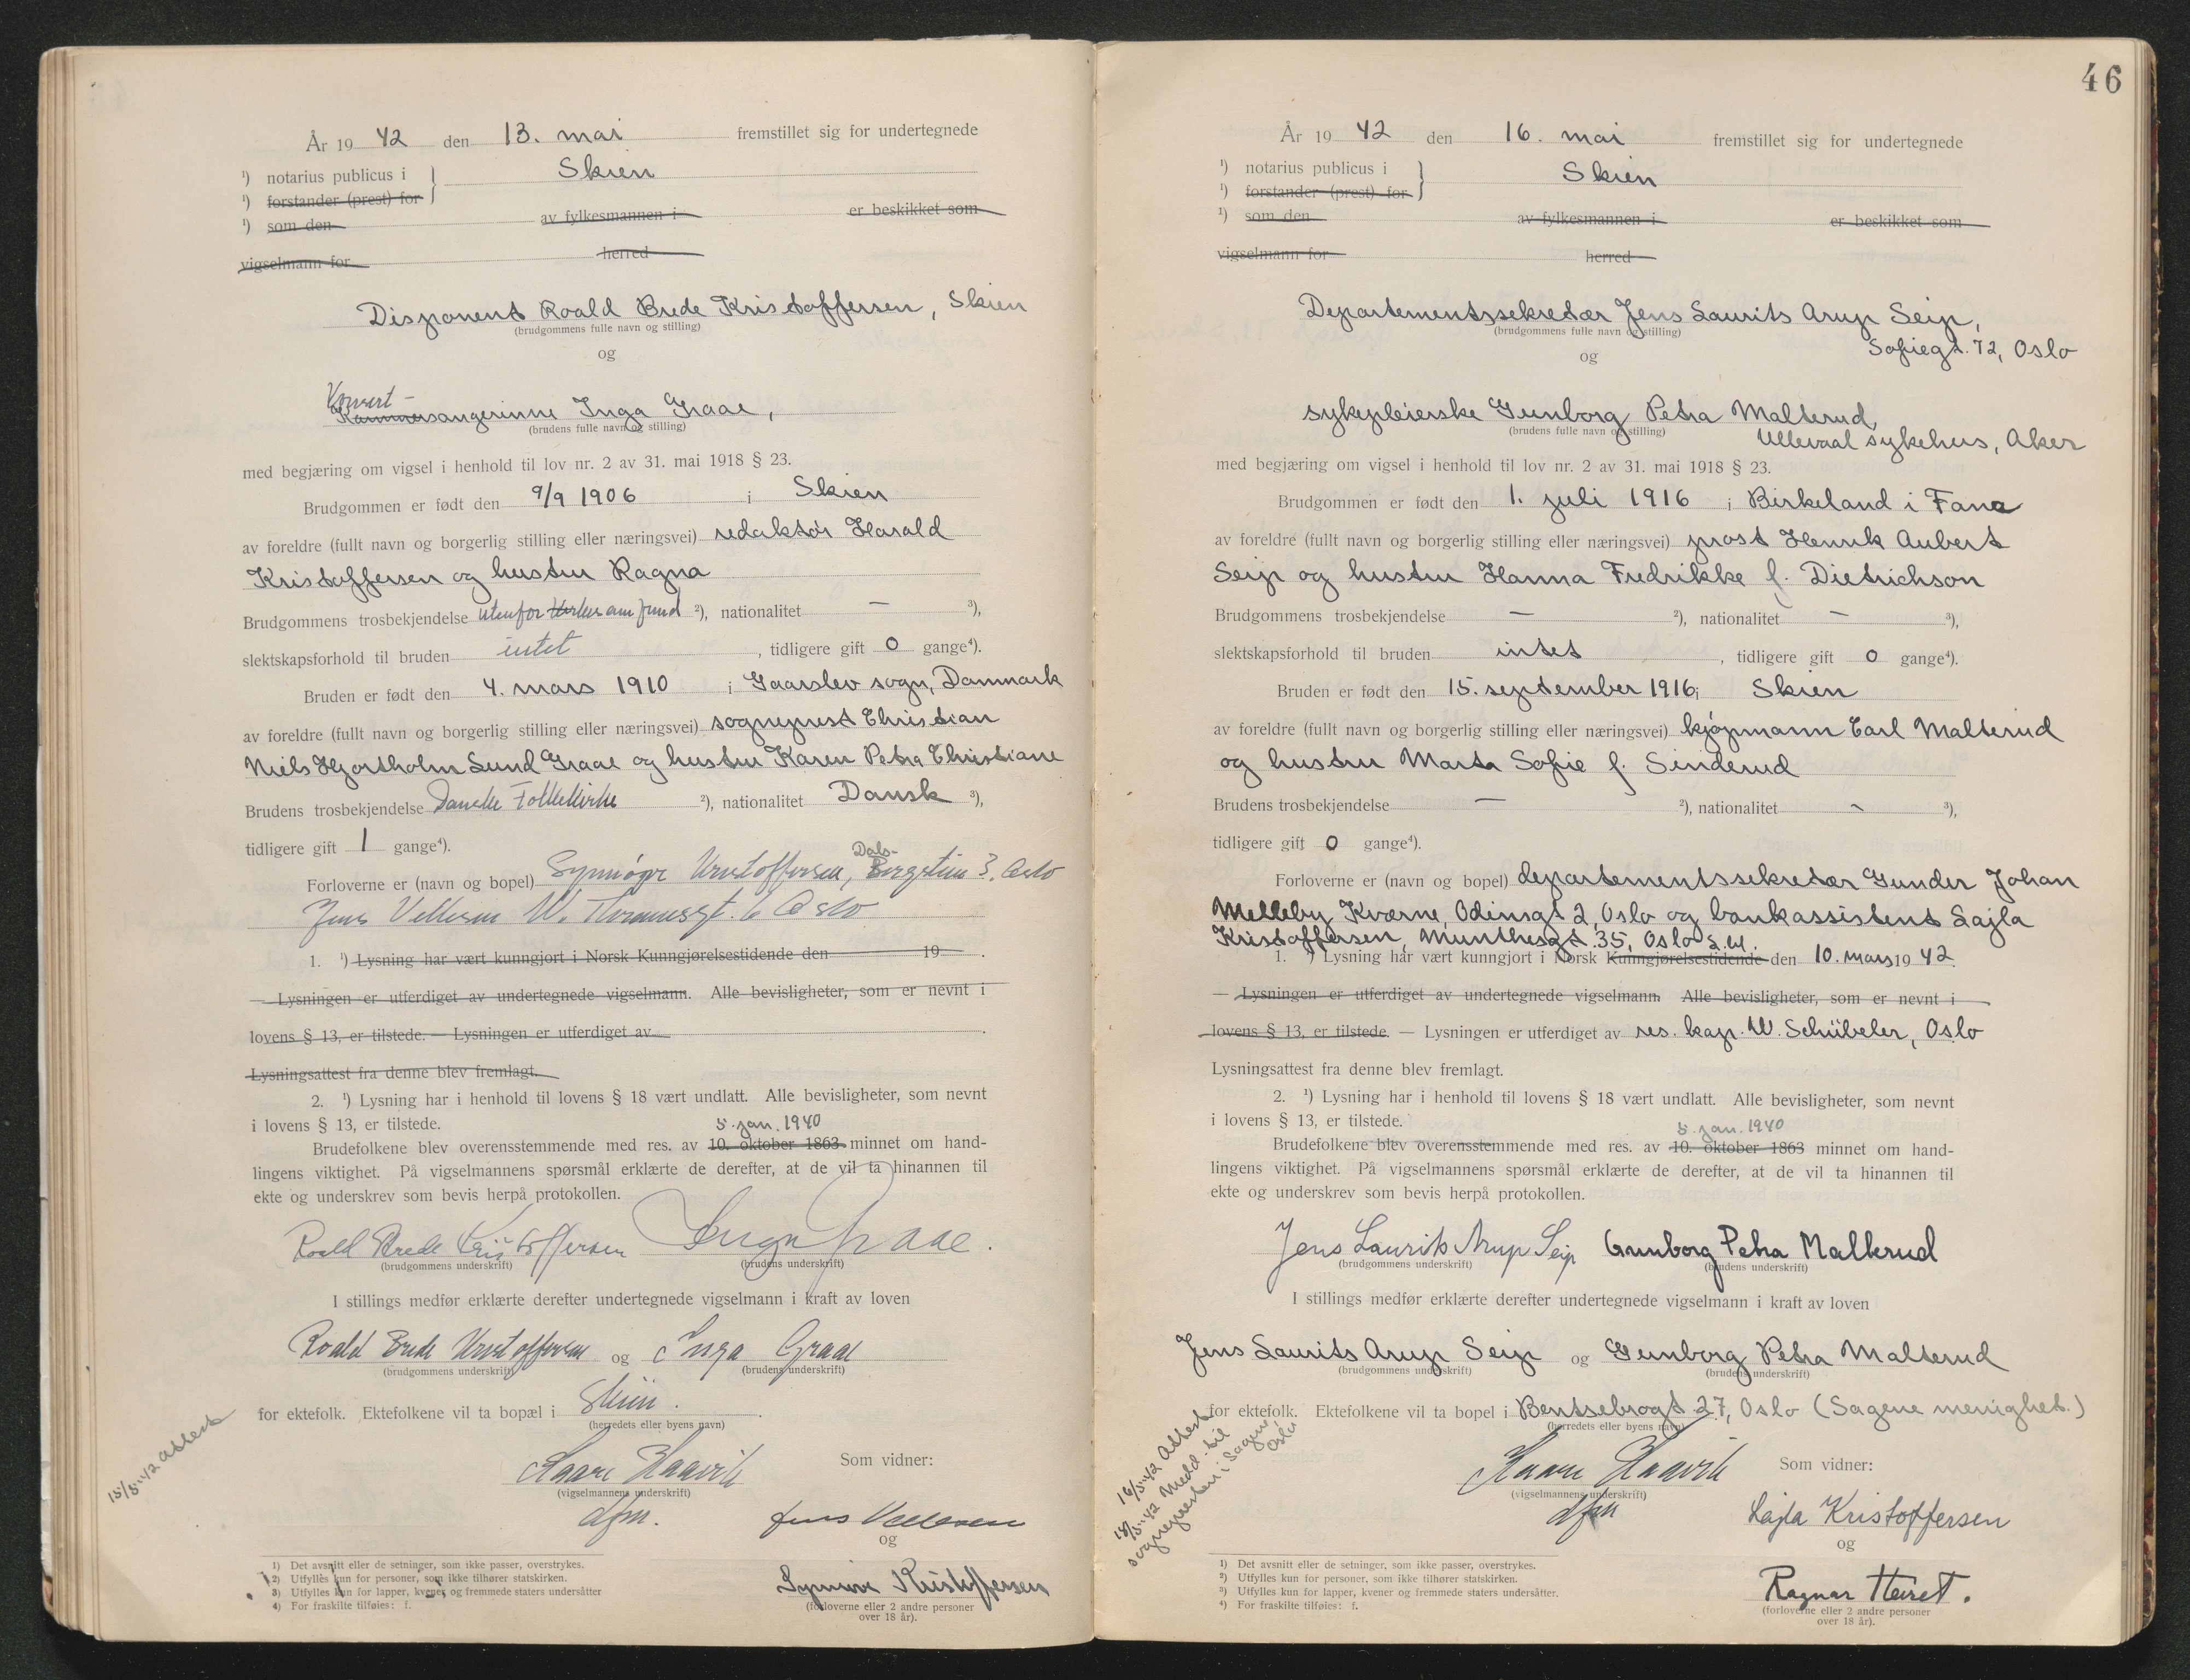 År 19 42 den 13. mai fremstillet sig for undertegnede
¹) notarius publicus i } Skien
¹) forstander (prest) for
¹) som den av fylkesmannen i er beskikket som
vigselmann for herred
Disponent Roald Brede Kristoffersen, Skien
(brudgommens fulle navn og stilling)
og
Konsert-
Kammersangerinne Inga Graae,
(brudens fulle navn og stilling)
med begjæring om vigsel i henhold til lov nr. 2 av 31. mai 1918 § 23.
Brudgommen er født den 9/9 1906 i Skien
av foreldre (fullt navn og borgerlig stilling eller næringsvei) redaktør Harald
Kristoffersen og hustru Ragna
Brudgommens trosbekjendelse utenfor ²), nationalitet — ³),
slektskapsforhold til bruden intet, tidligere gift 0 gange⁴).
Bruden er født den 4. mars 1910 i Gaarslev sogn, Danmark
av foreldre (fullt navn og borgerlig stilling eller næringsvei) sogneprest Christian
Niels Hjortholm Lund Graae og hustru Karen Petra Christiane
Brudens trosbekjendelse Danske Folkekirke ²), nationalitet Dansk ³),
tidligere gift 1 gange⁴).
Forloverne er (navn og bopel) Synnøve Kristoffersen, Dals-Bergstien 3, Oslo
Jens Vellesen W. Thranesgt. 6 Oslo
1. ¹) Lysning har vært kunngjort i Norsk Kunngjørelsestidende den 19 .
— Lysningen er utferdiget av undertegnede vigselmann. Alle bevisligheter, som er nevnt i
lovens § 13, er tilstede. — Lysningen er utferdiget av .
Lysningsattest fra denne blev fremlagt.
2. ¹) Lysning har i henhold til lovens § 18 vært undlatt. Alle bevisligheter, som nevnt
i lovens § 13, er tilstede.
5. jan. 1940
Brudefolkene blev overensstemmende med res. av 10. oktober 1863 minnet om hand-
lingens viktighet. På vigselmannens spørsmål erklærte de derefter, at de vil ta hinannen til
ekte og underskrev som bevis herpå protokollen.
Roald Brede Kristoffersen Inga Graae.
(brudgommens underskrift) (brudens underskrift)
I stillings medfør erklærte derefter undertegnede vigselmann i kraft av loven
Roald Brede Kristoffersen og Inga Graae
(brudgommens underskrift) (brudens underskrift)
for ektefolk. Ektefolkene vil ta bopæl i Skien.
(herredets eller byens navn)
15/5-42 attest
Kaare Haavik Som vidner:
(vigselmannens underskrift)
dfm. Jens Vellesen
og
Synnøve Kristoffersen
(forloverne eller 2 andre personer
over 18 år).
1) Det avsnitt eller de setninger, som ikke passer, overstrykes.
2) Utfylles kun for personer, som ikke tilhører statskirken.
3) Utfylles kun for lapper, kvener og fremmede staters undersåtter
4) For fraskilte tilføies: f.
46
År 19 42 den 16. mai fremstillet sig for undertegnede
¹) notarius publicus i } Skien
¹) forstander (prest) for
¹) som den av fylkesmannen i er beskikket som
vigselmann for herred
Departementssekretær Jens Laurits Arup Seip,
(brudgommens fulle navn og stilling)
Sofiegt. 72, Oslo
og
sykepleierske Gunborg Petra Malterud,
(brudens fulle navn og stilling)
Ullevaal sykehus, Aker
med begjæring om vigsel i henhold til lov nr. 2 av 31. mai 1918 § 23.
Brudgommen er født den 1. juli 1916 i Birkeland i Fana
av foreldre (fullt navn og borgerlig stilling eller næringsvei) prost Henrik Aubert
Seip og hustru Hanna Fredrikke f. Dietrichson
Brudgommens trosbekjendelse — ²), nationalitet — ³),
slektskapsforhold til bruden intet, tidligere gift 0 gange⁴).
Bruden er født den 15. september 1916 i Skien
av foreldre (fullt navn og borgerlig stilling eller næringsvei) kjøpmann Carl Malterud
og hustru Marta Sofie f. Sinderud
Brudens trosbekjendelse — ²), nationalitet — ³),
tidligere gift 0 gange⁴).
Forloverne er (navn og bopel) departementssekretær Gunder Johan
Melleby Kværne, Odinsgt 2, Oslo og bankassistent Lajla
Kristoffersen, Munthesgt. 35, Oslo
1. ¹) Lysning har vært kunngjort i Norsk Kunngjørelsestidende den 10. mars 19 42.
— Lysningen er utferdiget av undertegnede vigselmann. Alle bevisligheter, som er nevnt i
lovens § 13, er tilstede. — Lysningen er utferdiget av res. kap. W. Schübeler, Oslo
Lysningsattest fra denne blev fremlagt.
2. ¹) Lysning har i henhold til lovens § 18 vært undlatt. Alle bevisligheter, som nevnt
i lovens § 13, er tilstede.
5. jan. 1940
Brudefolkene blev overensstemmende med res. av 10. oktober 1863 minnet om hand-
lingens viktighet. På vigselmannens spørsmål erklærte de derefter, at de vil ta hinannen til
ekte og underskrev som bevis herpå protokollen.
Jens Laurits Arup Seip Gunborg Petra Malterud
(brudgommens underskrift) (brudens underskrift)
I stillings medfør erklærte derefter undertegnede vigselmann i kraft av loven
Jens Laurits Arup Seip og Gunborg Petra Malterud
(brudgommens underskrift) (brudens underskrift)
for ektefolk. Ektefolkene vil ta bopel i Bentsebrogt. 27, Oslo (Sagene menighet.)
(herredets eller byens navn)
16/5-42 Attest
18/5-42 Medd. til
sognepresten i Sagene,
Oslo
Kaare Haavik Som vidner:
(vigselmannens underskrift)
dfm Lajla Kristoffersen
og
Ragnar Heiret.
(forloverne eller 2 andre personer
over 18 år).
1) Det avsnitt eller de setninger, som ikke passer, overstrykes.
2) Utfylles kun for personer, som ikke tilhører statskirken.
3) Utfylles kun for lapper, kvener og fremmede staters undersåtter.
4) For fraskilte tilføies: f.